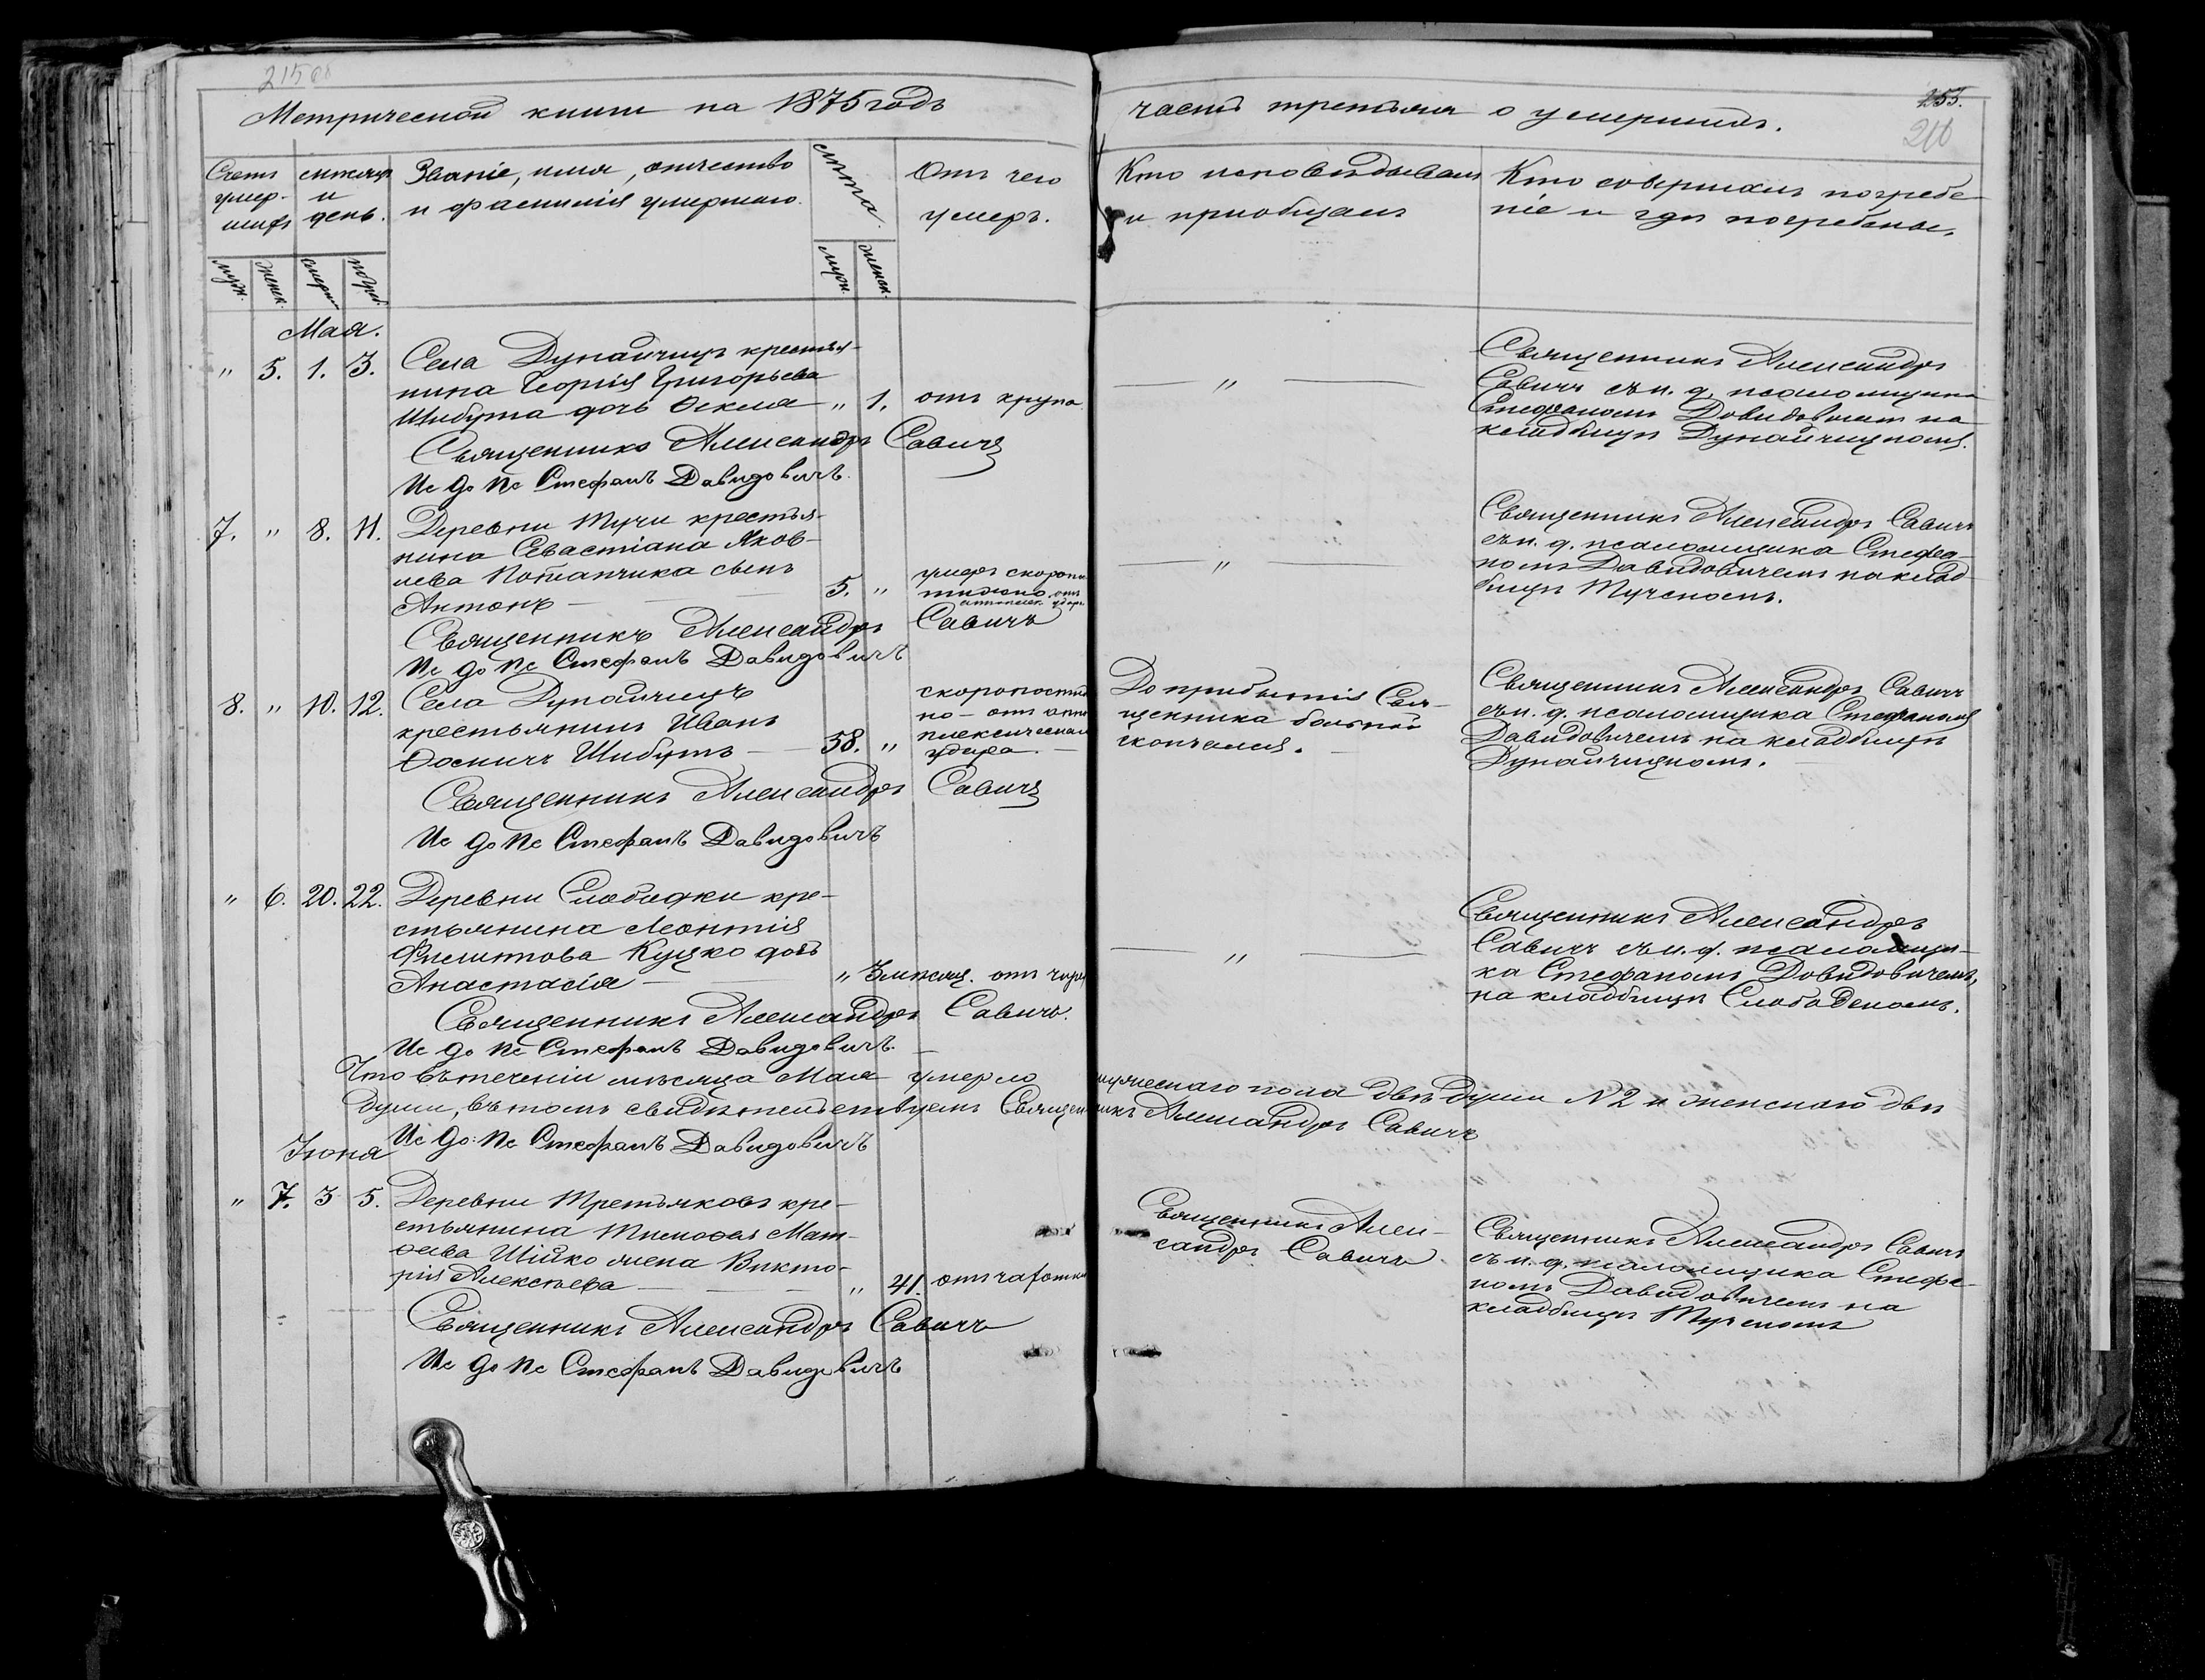 215 об
Метрической книги на 1875 годъ
часть третья о умершихъ.
255.
216
Счетъ умер-шихъ
мѣсяцъ и день.
Званіе, имя, отчество
и фамилія умершаго.
лѣта.
Отъ чего
умеръ.
Кто исповѣдывалъ
и пріобщалъ
Кто совершилъ погребе-
ніе и гдѣ погребены.
муж. женск. смерт. погреб. муж. женск.
Мая.
" 5. 1. 3. Села Дунайчицъ крестья-
нина Георгія Григорьева
Шибута дочь Ѳекла " 1. отъ крупа
Священникъ Александръ Савичъ
Ис До Пс Стефанъ Давидовичъ.
— " —
Священникъ Александръ
Савичъ съ и. д. псаломщика
Стефаномъ Давидовичемъ на
кладбищѣ Дунайчицкомъ.
7. " 8. 11. Деревни Тучи крестья-
нина Севастіана Яков-
лева Потапчика сынъ
Антонъ — 5. "
умеръ скоропо-
стижно отъ
апоплек. удара
Священникъ Александръ Савичъ
Ис До Пс Стефанъ Давидовичъ
— " —
Священникъ Александръ Савичъ
съ и. д. псаломщика Стефа-
номъ Давидовичемъ на клад-
бищѣ Тучскомъ.
8. " 10. 12. Села Дунайчицъ
крестьянинъ Иванъ
Ѳомичъ Шибутъ — 58. "
скоропостиж
но — отъ апо
плексическаго
удара. —
Священникъ Александръ Савичъ
Ис До Пс Стефанъ Давидовичъ
До прибытія Свя-
щенника больной
скончался. —
Священникъ Александръ Савичъ
съ и. д. псаломщика Стефаномъ
Давидовичемъ на кладбищѣ
Дунайчицкомъ.
" 6. 20. 22. Деревни Слободки кре-
стьянина Леонтія
Филиппова Куцко дочь
Анастасія — " 3 мѣсяц. отъ
Священникъ Александръ Савичъ.
Ис До Пс Стефанъ Давидовичъ.
— " —
Священникъ Александръ
Савичъ съ и. д. псаломщи-
ка Стефаномъ Давидовичемъ,
на кладбищѣ Слободскомъ.
Что въ теченіи мѣсяца Мая умерло мужескаго пола двѣ души № 2 и женскаго двѣ
души, въ томъ свидѣтельствуемъ Священникъ Александръ Савичъ
Ис До: Пс Стефанъ Давидовичъ
Іюня
" 7. 3 5. Деревни Третьяковъ кре-
стьянина Тимоѳея Мат-
ѳеева Шійко жена Викто-
рія Алексѣева — " 41. отъ чахотки
Священникъ Александръ Савичъ
Ис До Пс Стефанъ Давидовичъ
Священникъ Алек-
сандръ Савичъ
Священникъ Александръ Савичъ
съ и. д. псаломщика Стефа-
номъ Давидовичемъ на
кладбищѣ Тучскомъ